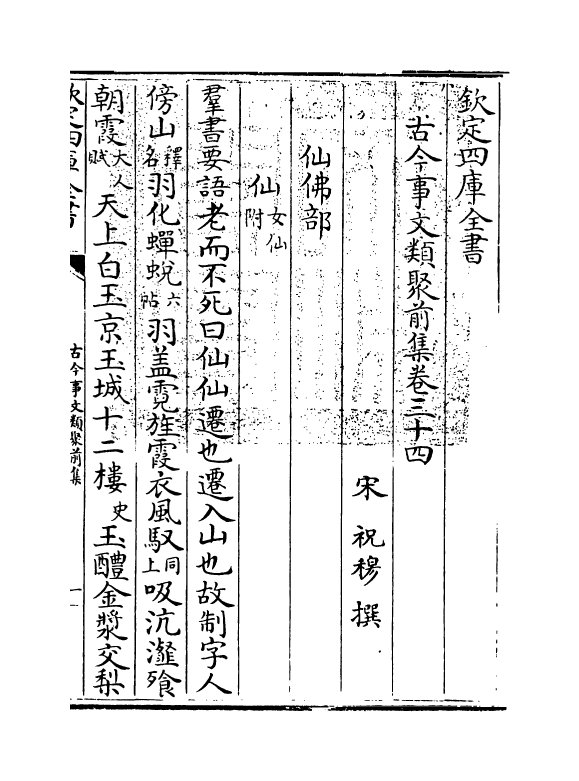 欽定四庫全書
古今事文類聚前集卷三十四
宋 祝穆 撰
仙佛部
仙女仙附
羣書要語老而不死曰仙仙遷也遷入山也故制字人
傍山釋名羽化蟬蛻六帖羽盖霓旌霞衣風馭同上吸沆瀣飱
朝霞大人賦天上白玉京玉城十二樓史玉醴金漿交梨
欽定四庫全書
古今事文類聚前集
一